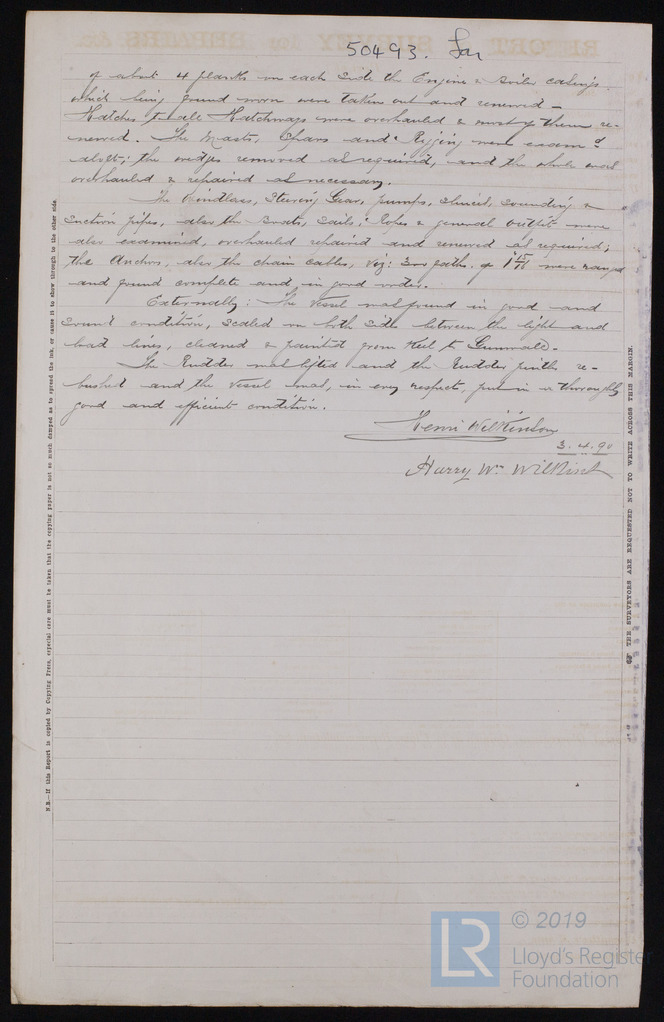 50493. Lon
of about 4 planks on each side the Engine & Boiler casings
which being found worn were taken out and renewed –
Hatches to all Hatchways were overhauled & most of them re-
newed. The Masts, Spars and Rigging were exam d
aloft; the wedges removed as required, and the whole
overhauled & repaired as necessary.
The Windlass, Steering Gear, pumps, sluices, sounding &
suction pipes, also the Boats, Sails, Ropes & general outfit were
also examined, overhauled repaired and renewed as required;
the Anchors, also the chain cables, viz: 300 faths. of 1 15/16 were ranged
and found complete and in good order.
Externally: The vessel was found in good and
sound condition, scaled on both sides between the light and
load lines, cleaned & painted from Keel to Gunwale.
The Rudder was lifted and the Rudder pintles re-
bushed and the vessel was, in every respect, put in a thoroughly
good and efficient condition.
Henri Wilkinson
3.4.90
Harry Wm
N.B.—If this Report is copied by Copying Press, especial care must be taken that the copying paper is not so much damped as to spread the ink, or cause it to show through to the other side.
THE SURVEYORS ARE REQUESTED NOT TO WRITE ACROSS THIS MARGIN.
LR
© 2019
Lloyd's Register
Foundation